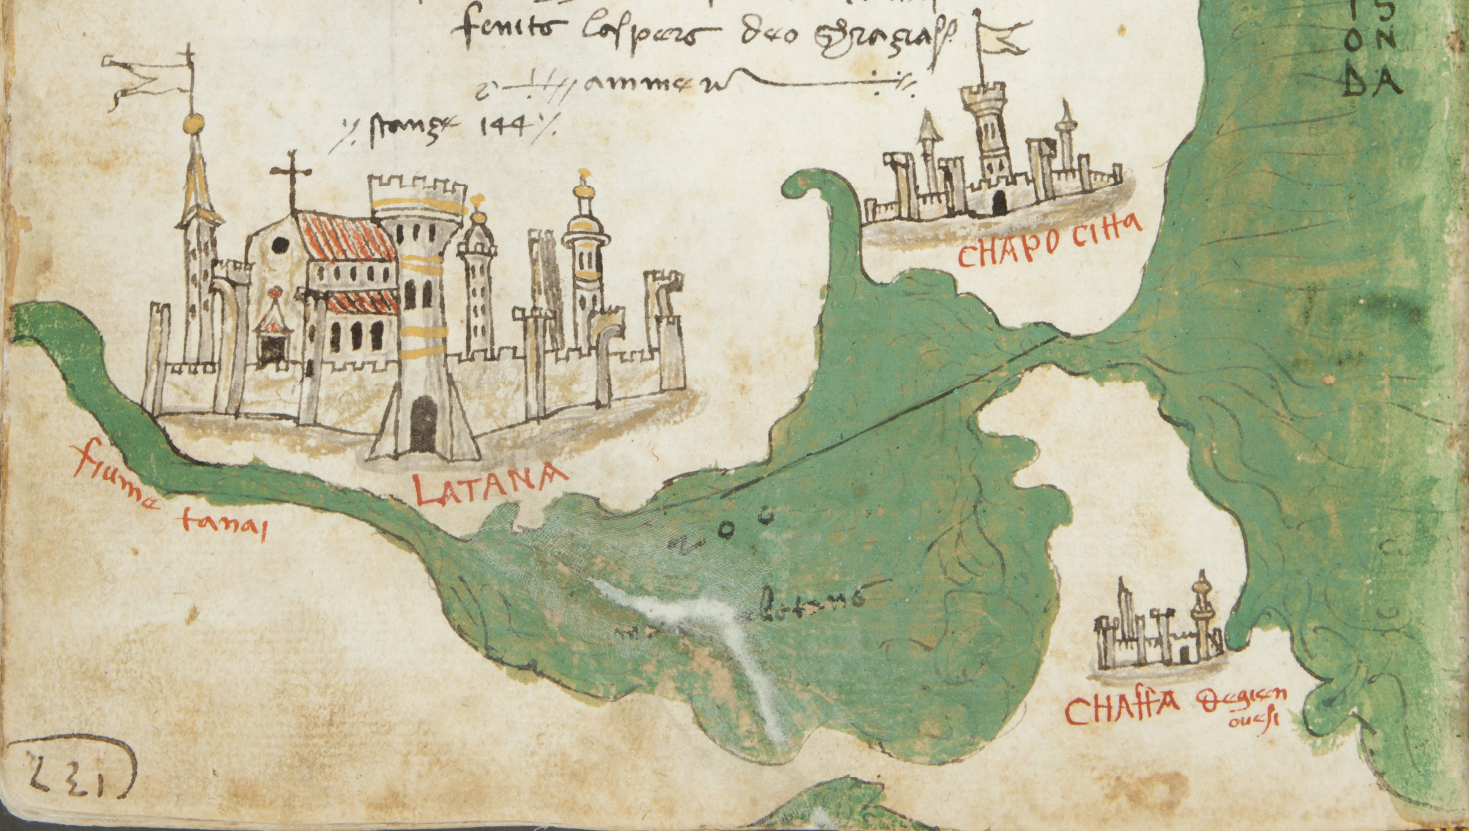 fenits lospers deo ghragrass
ammen
stanze 144
IS
ON
DA
CHAPO CITTA
LATANA
fiume
tanai
CHAFFA degien
ovesi